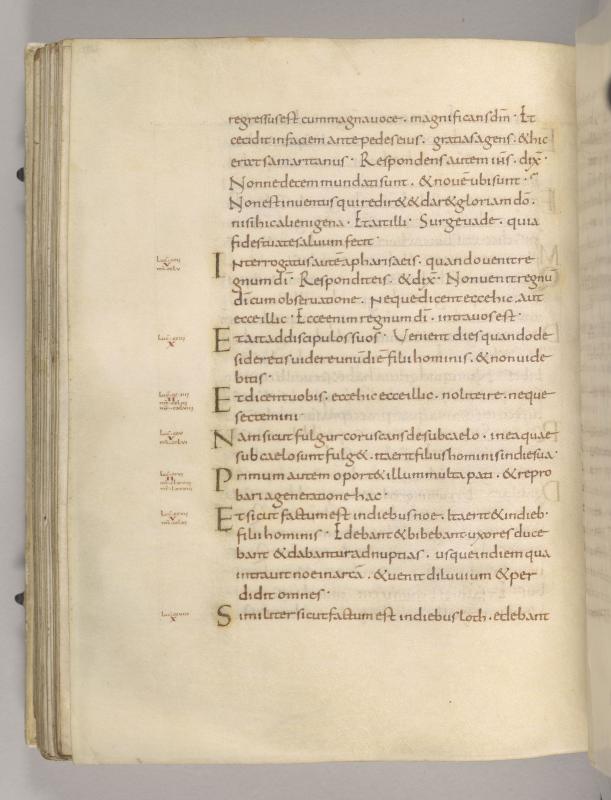 regressus est cum magna uoce · magnificans dm̄ · Et
cecidit in faciem ante pedes eius · gratias agens · & hic
erat samaritanus · Respondens autem ih̄s · dix̄ ·
Nonne decem mundati sunt · & nouē ubi sunt ·
Non est inuentus qui redir& & dar& gloriam dō ·
nisi hic alienigena · Et ait illi · Surge uade · quia
fides tua te saluum fecit ·
Interrogatus autē a pharisaeis · quando uenit re
gnum dī · Respondit eis · & dix̄ · Non uenit regnū
dī cum obseruatione · neque dicent ecce hic · aut
ecce illic · Ecce enim regnum dī · intra uos est ·
Et ait ad discipulos suos · Uenient dies quando de
sideretis uidere unū diē filii hominis · & non uide
bitis ·
Et dicent uobis · ecce hic ecce illic · nolite ire · neque
sectemini ·
Nam sicut fulgur coruscans de sub caelo · in ea quae
sub caelo sunt fulg& · ita erit filius hominis in die sua ·
Primum autem oport& illum multa pati · & repro
bari a generatione hac ·
Et sicut factum est in diebus noe · Ita erit & in dieb·
filii hominis · Edebant & bibebant uxores duce
bant & dabantur ad nuptias · usque in diem qua
intrauit noe in arcā · & uenit diluuium & per
didit omnes ·
Similiter sicut factum est in diebus loth · edebant